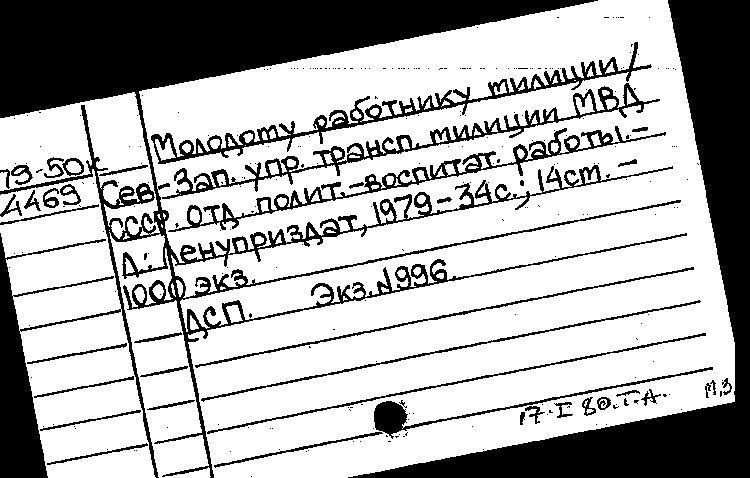 Молодому работнику милиции /
79-50к
4469
Сев-Зап. упр. трансп. милиции МВД
СССР. Отд. полит.-воспитат. работы.-
Л.: Ленуприздат, 1979.-34с.; 14см. -
1000 экз.
ДСП. Экз.№996.
17.I 80.Т.А. М.З